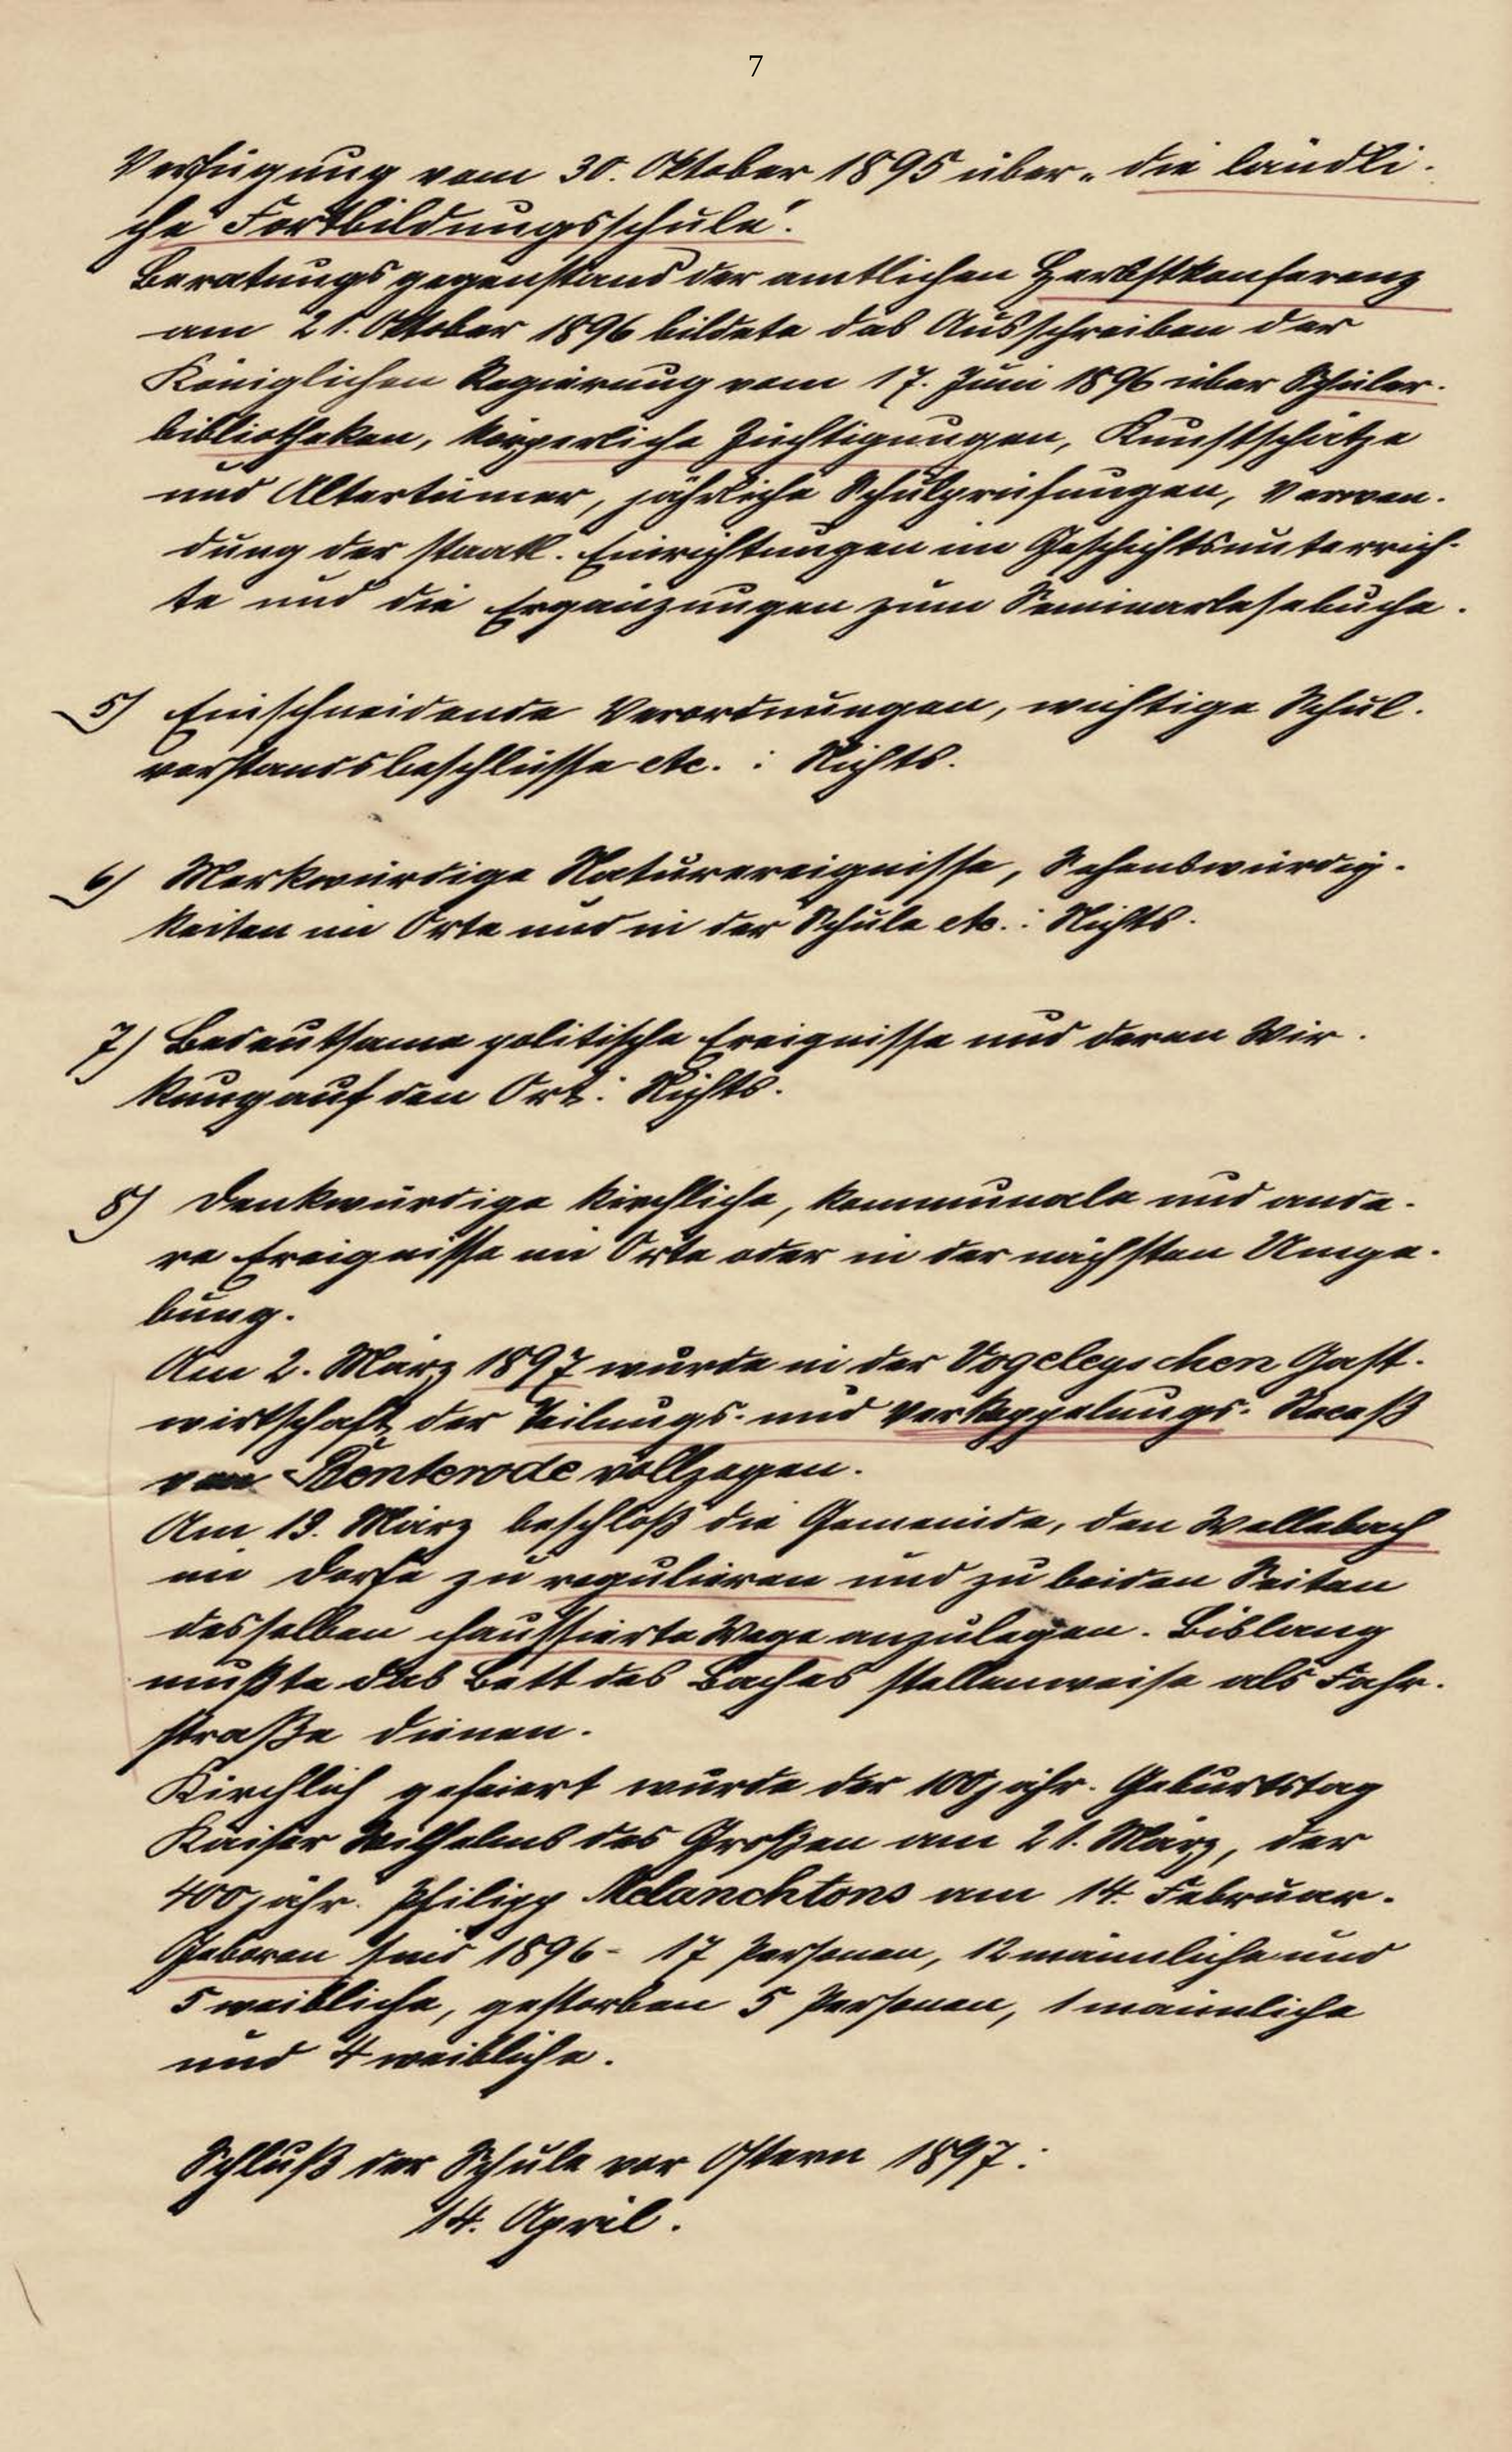 7
Verfügung vom 30. Oktober 1895 über „die ländli-
che Fortbildungsschule".
Beratungsgegenstand der amtlichen Herbstkonferenz
am 21. Oktober 1896 bildete das Ausschreiben der
Königlichen Regierung vom 17. Juni 1896 über Schüler-
bibliotheken, körperliche Züchtigungen, Kunstschätze
und Altertümer, jährliche Schulprüfungen, Verwen-
dung der staatl. Einrichtungen im Geschichtsunterrich-
te und die Ergänzungen zum Seminarlesebuche.
5) Einschneidende Verordnungen, wichtige Schul-
vorstandsbeschlüsse etc. : Nichts.
6) Merkwürdige Naturereignisse, Sehenswürdig-
keiten im Orte und in der Schule etc. : Nichts.
7) Bedeutsame politische Ereignisse und deren Wir-
kung auf den Ort: Nichts.
8) Denkwürdige kirchliche, kommunale und ande-
re Ereignisse im Orte oder in der nächsten Umge-
bung.
Am 2. März 1897 wurde in der Vogeleyschen Gast-
wirtschaft der Teilungs- und Verkoppelungs-Receß
von Benterode vollzogen.
Am 19. März beschloß die Gemeinde, den Wellebach
im Dorfe zu regulieren und zu beiden Seiten
desselben chaussierte Wege anzulegen. Bislang
mußte das Bett des Baches stellenweise als Fahr-
straße dienen.
Kirchlich gefeiert wurde der 100jähr. Geburtstag
Kaiser Wilhelms des Großen am 21. März, der
400jähr. Philipp Melanchtons am 14. Februar.
Geboren sind 1896 - 17 Personen, 12 männliche und
5 weibliche, gestorben 5 Personen, 1 männliche
und 4 weibliche.
Schluß der Schule vor Ostern 1897:
14. April.